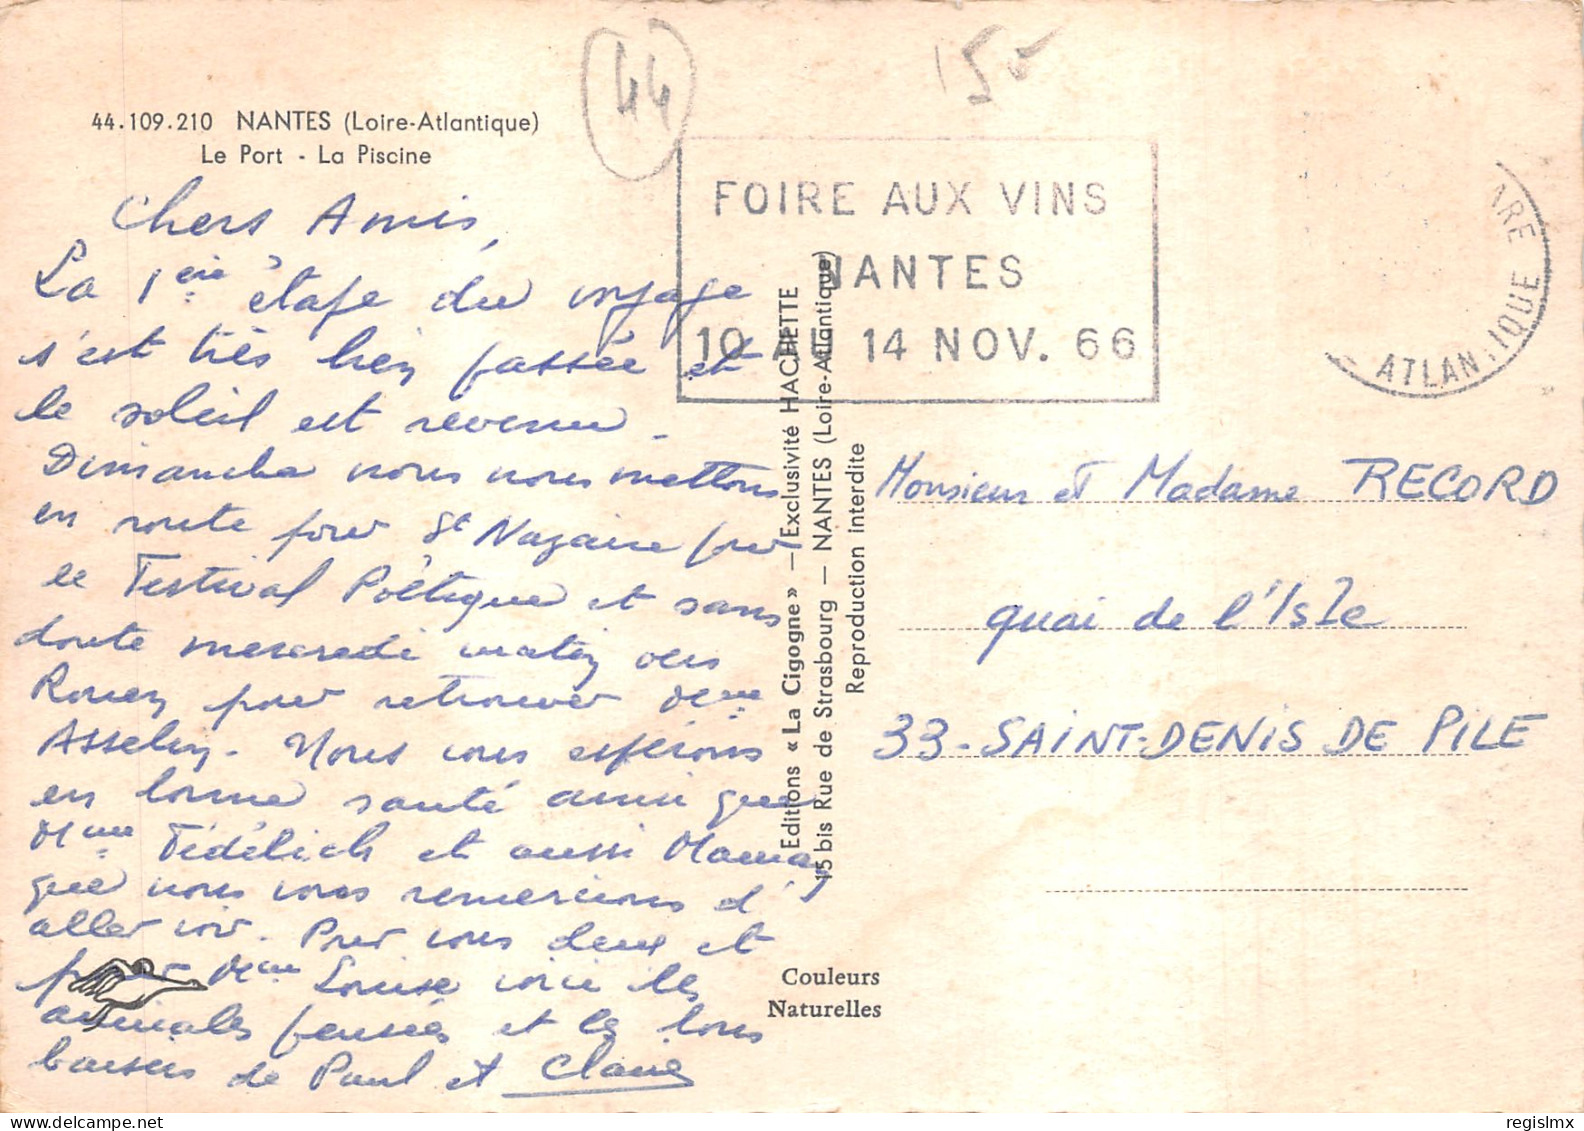 44
15
44.109.210 NANTES (Loire-Atlantique)
Le Port - La Piscine
FOIRE AUX VINS
NANTES
10 AU 14 NOV. 66
ATLANTIQUE
Chers Amis,
La 1ère étape du voyage
s'est très bien passée et
le soleil est revenu.
Dimanche nous nous mettons
en route pour St Nazaire pour
le Festival Poétique et sans
doute mercredi matin vers
Rouen pour retrouver Mme
Asselin. Nous vous espérons
en bonne santé ainsi que
Mme Fidélich et aussi Mama
que nous vous remercions d'
aller voir. Pour vous deux et
pour Mme Louise voici les
amicales pensées et les bons
baisers de Paul et Claude
Editions « La Cigogne » — Exclusivité HACHETTE
15 bis Rue de Strasbourg — NANTES (Loire-Atlantique)
Reproduction interdite
Monsieur et Madame RECORD
quai de l'Isle
33 - SAINT-DENIS DE PILE
Couleurs
Naturelles
regislmx